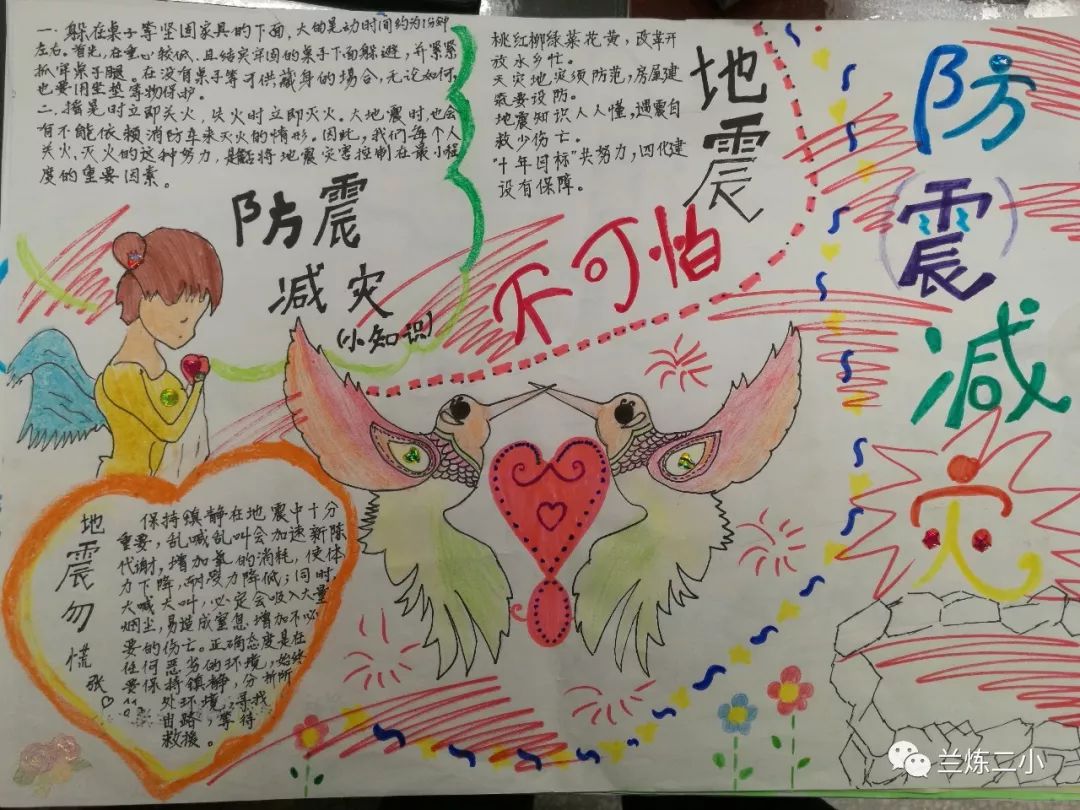 一、躲在桌子等坚固家具的下面，大的晃动时间约为1分钟
左右。首先，在重心较低、且结实牢固的桌子下面躲避，并紧紧
抓牢桌子腿。在没有桌子等可供藏身的场合，无论如何，
也要用坐垫等物保护。
二、摇晃时立即关火，失火时立即灭火。大地震时，也会
有不能依赖消防车来灭火的情形。因此，我们每个人
关火、灭火的这种努力，是能将地震灾害控制在最小程
度的重要因素。
防震
减灾
(小知识)
桃红柳绿菜花黄，改革开
放永乡忙。
天灾地灾须防范，房屋建
筑要设防。
地震知识人人懂，遇震自
救少伤亡。
"十年目标"共努力，四化建
设有保障。
地震
不可怕
防震减灾
地震勿慌张
保持镇静在地震中十分
重要，乱喊乱叫会加速新陈
代谢，增加氧的消耗，使体
力下降，耐受力降低；同时，
大喊大叫，必定会吸入大量
烟尘，易造成窒息，增加不必
要的伤亡。正确态度是在
任何恶劣的环境，始终
要保持镇静，分析所
处环境，寻找
出路，等待
救援。
兰炼二小